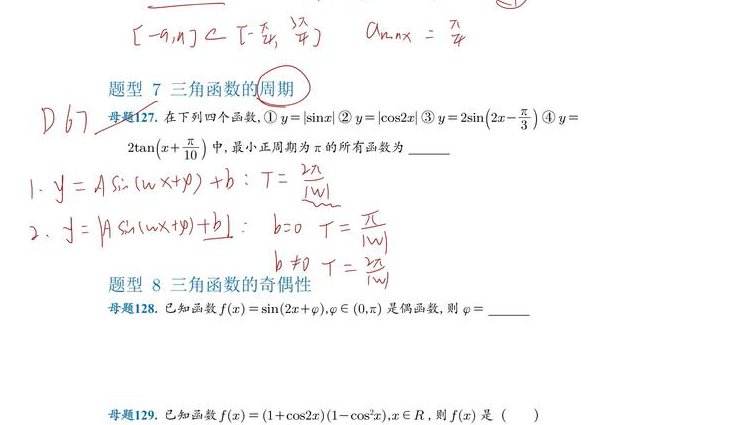 [-a,a] ⊂ [-π/4, 3π/4]  a max = π/4
题型 7 三角函数的周期
D 67 母题127. 在下列四个函数, ① y=|sinx| ② y=|cos2x| ③ y=2sin(2x-π/3) ④ y=
2tan(x+π/10) 中, 最小正周期为 π 的所有函数为 ______
1. y = A sin(wx+φ) + b : T = 2π/|w|
2. y = |A sin(wx+φ)+b| : b=0 T = π/|w|
b≠0 T = 2π/|w|
题型 8 三角函数的奇偶性
母题128. 已知函数 f(x)=sin(2x+φ),φ∈(0,π) 是偶函数, 则 φ= ______
母题129. 已知函数 f(x)=(1+cos2x)(1-cos²x),x∈R, 则 f(x) 是 (  )